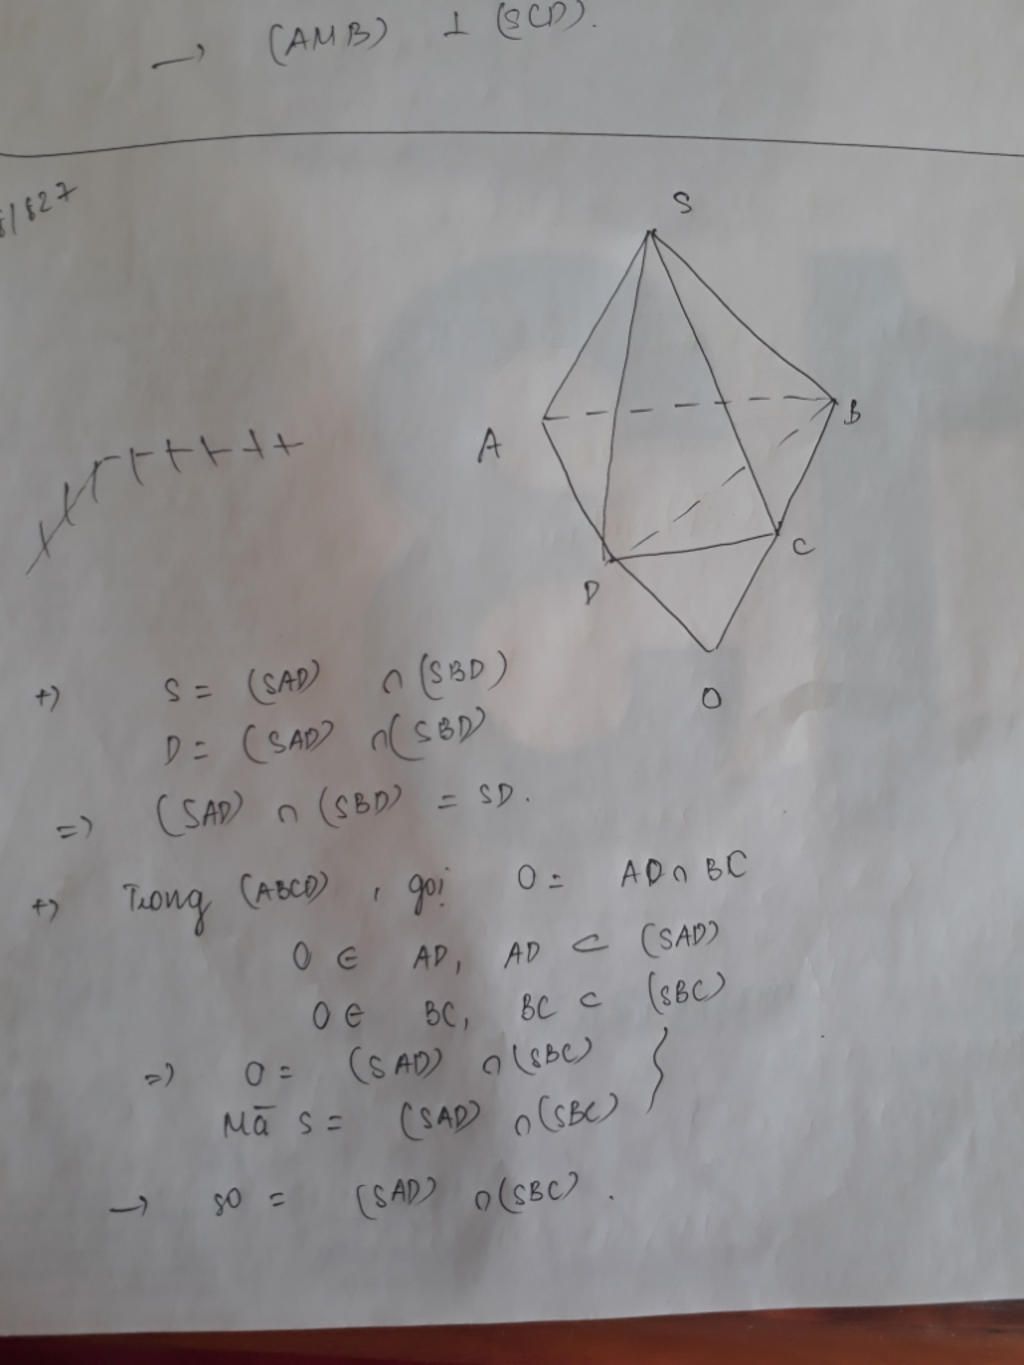 → (AMB) ⊥ (SCD).
/827
S
A
B
C
D
O
+) S = (SAD) ∩ (SBD)
D = (SAD) ∩ (SBD)
=) (SAD) ∩ (SBD) = SD.
+) Trong (ABCD), gọi O = AD ∩ BC
O ∈ AD, AD ⊂ (SAD)
O ∈ BC, BC ⊂ (SBC)
=) O = (SAD) ∩ (SBC) }
Mā S = (SAD) ∩ (SBC)
→ SO = (SAD) ∩ (SBC).